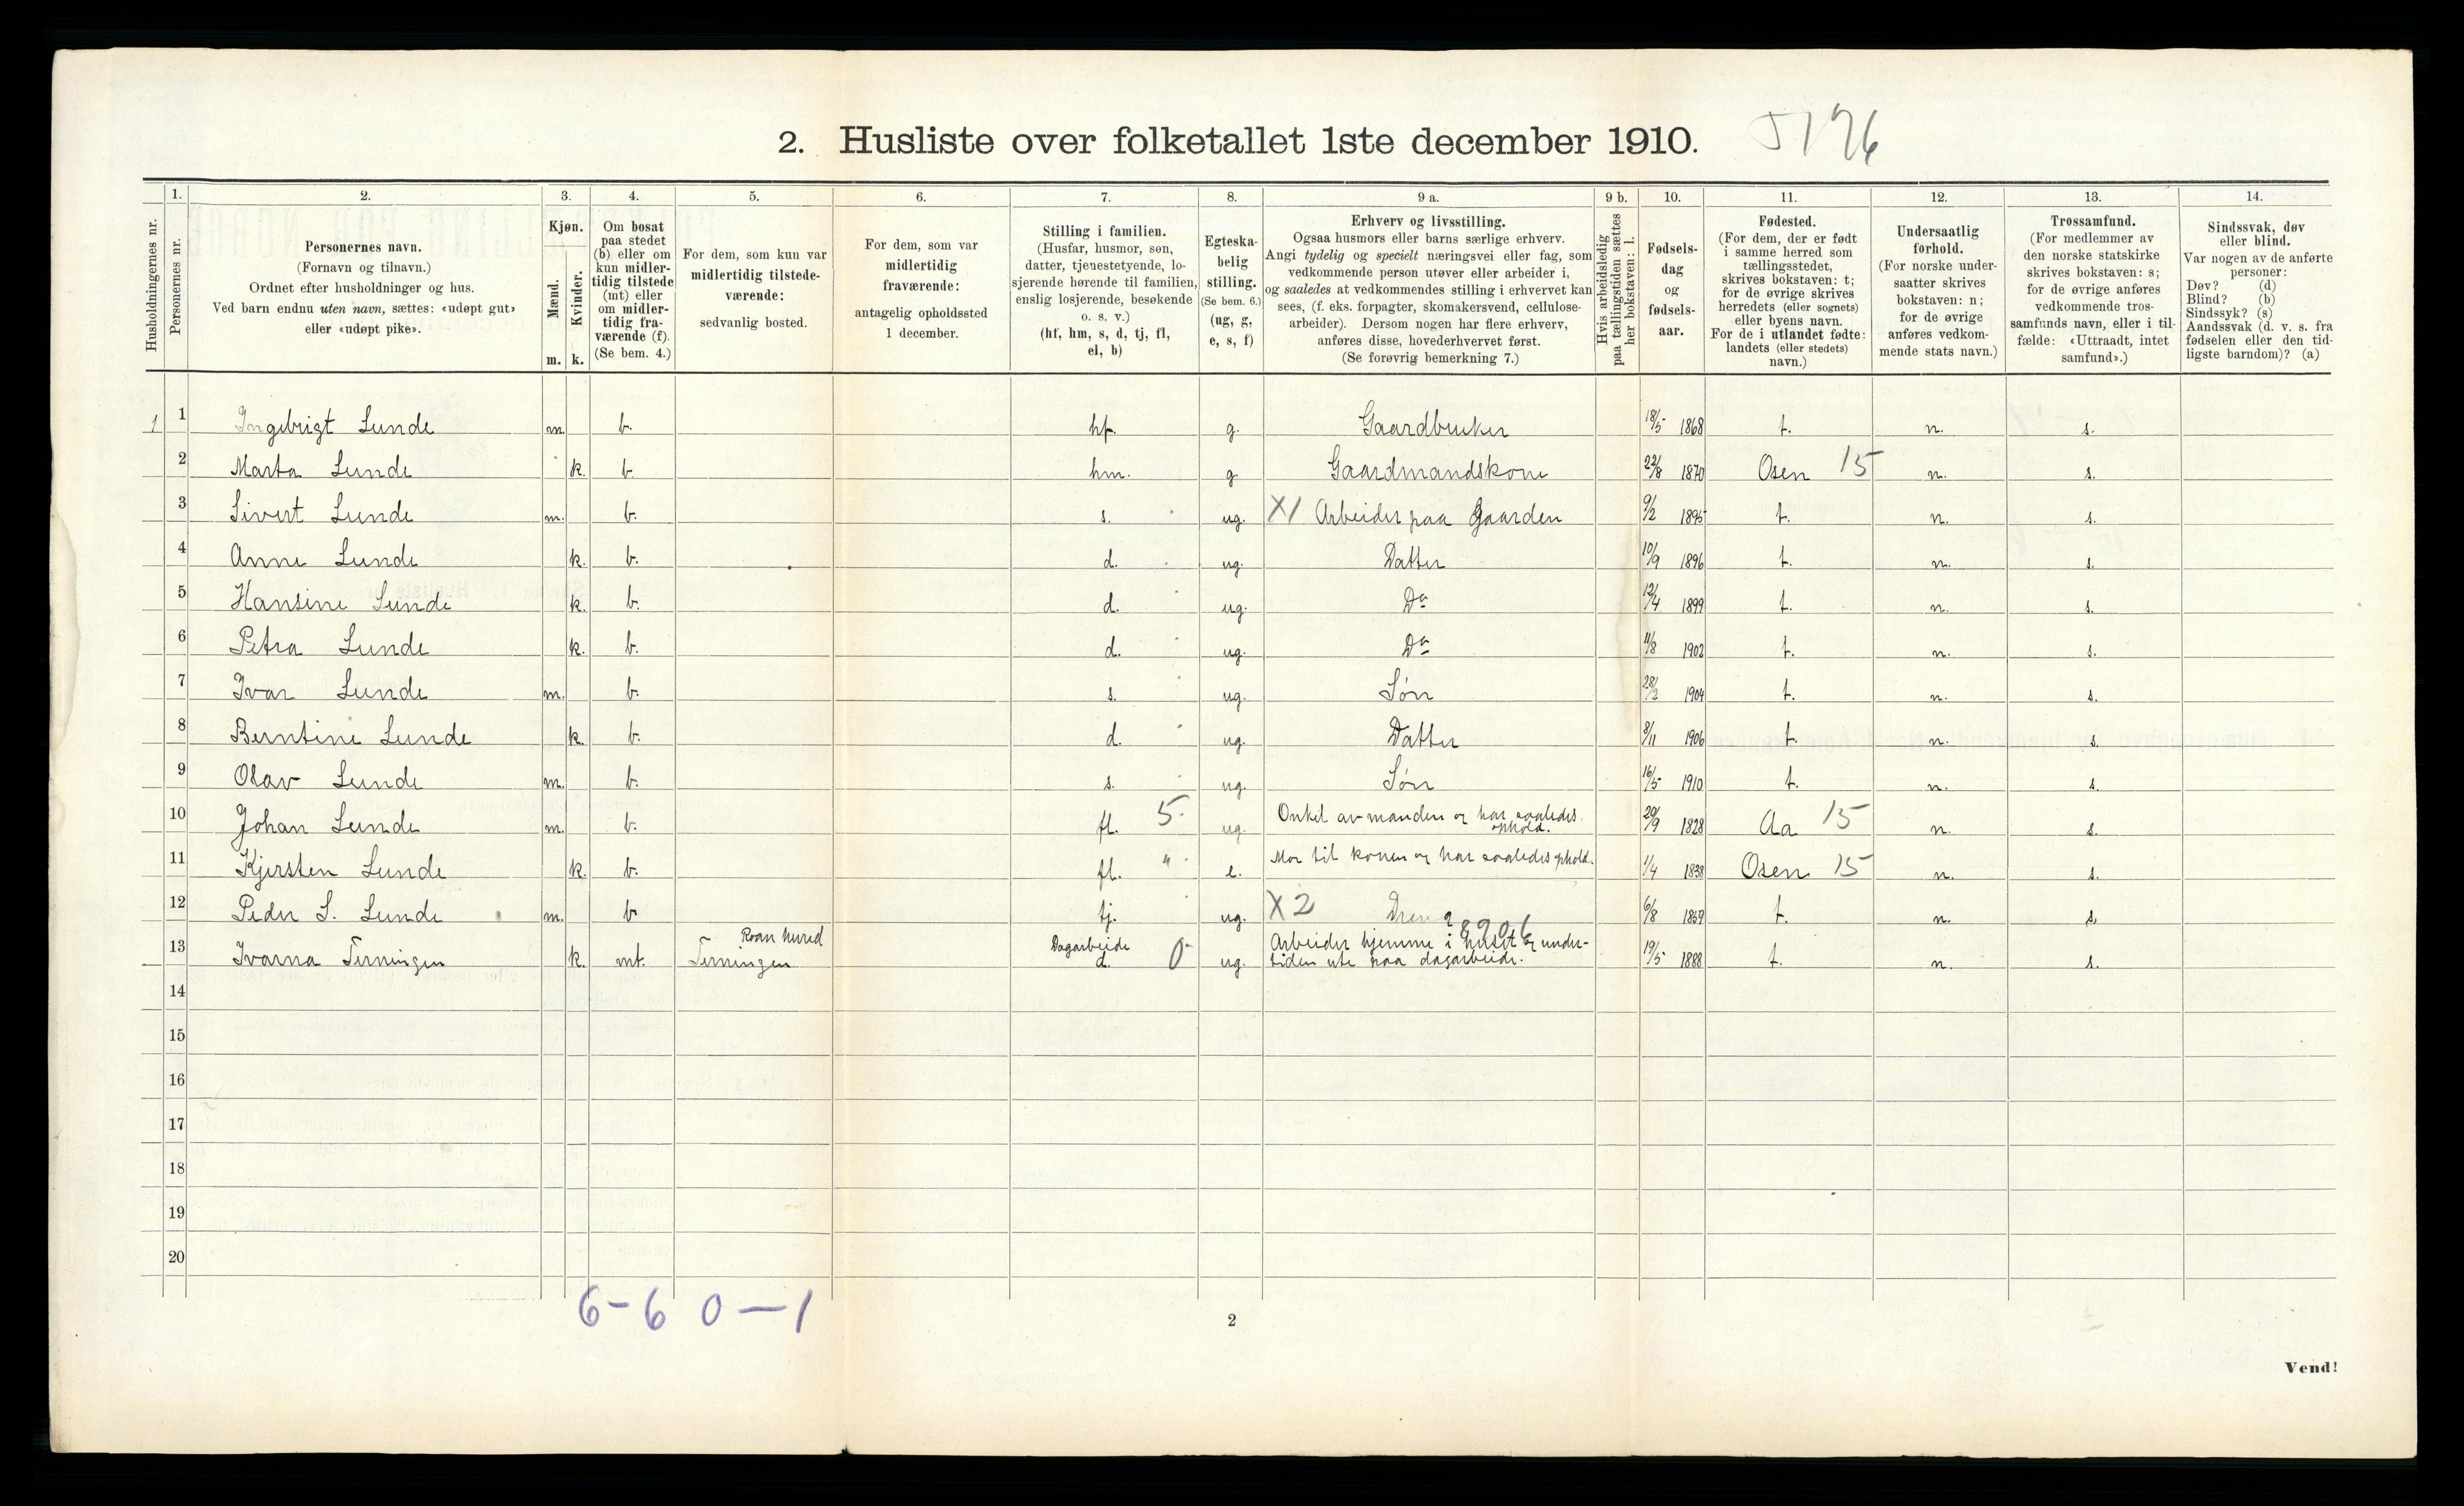 2. Husliste over folketallet 1ste december 1910. 5196
Husholdningernes nr.
1. Personernes nr.
2. Personernes navn.
(Fornavn og tilnavn.)
Ordnet efter husholdninger og hus.
Ved barn endnu uten navn, sættes: «udøpt gut»
eller «udøpt pike».
3. Kjøn.
Mænd. m.
Kvinder. k.
4. Om bosat
paa stedet
(b) eller om
kun midler-
tidig tilstede
(mt) eller
om midler-
tidig fra-
værende (f).
(Se bem. 4.)
5. For dem, som kun var
midlertidig tilstede-
værende:
sedvanlig bosted.
6. For dem, som var
midlertidig
fraværende:
antagelig opholdssted
1 december.
7. Stilling i familien.
(Husfar, husmor, søn,
datter, tjenestetyende, lo-
sjerende hørende til familien,
enslig losjerende, besøkende
o. s. v.)
(hf, hm, s, d, tj, fl,
el, b)
8. Egteska-
belig
stilling.
(Se bem. 6.)
(ug, g,
e, s, f)
9 a. Erhverv og livsstilling.
Ogsaa husmors eller barns særlige erhverv.
Angi tydelig og specielt næringsvei eller fag, som
vedkommende person utøver eller arbeider i,
og saaledes at vedkommendes stilling i erhvervet kan
sees, (f. eks. forpagter, skomakersvend, cellulose-
arbeider). Dersom nogen har flere erhverv,
anføres disse, hovederhvervet først.
(Se forøvrig bemerkning 7.)
9 b. Hvis arbeidsledig
paa tællingstiden sættes
her bokstaven: l.
10. Fødsels-
dag
og
fødsels-
aar.
11. Fødested.
(For dem, der er født
i samme herred som
tællingsstedet,
skrives bokstaven: t;
for de øvrige skrives
herredets (eller sognets)
eller byens navn.
For de i utlandet fødte:
landets (eller stedets)
navn.)
12. Undersaatlig
forhold.
(For norske under-
saatter skrives
bokstaven: n;
for de øvrige
anføres vedkom-
mende stats navn.)
13. Trossamfund.
(For medlemmer av
den norske statskirke
skrives bokstaven: s;
for de øvrige anføres
vedkommende tros-
samfunds navn, eller i til-
fælde: «Uttraadt, intet
samfund».)
14. Sindssvak, døv
eller blind.
Var nogen av de anførte
personer:
Døv? (d)
Blind? (b)
Sindssyk? (s)
Aandssvak (d. v. s. fra
fødselen eller den tid-
ligste barndom)? (a)
1 1 Ingebrigt Lunde m. b. hf. g. Gaardbruker 18/5 1868 t. n. s.
2 Marta Lunde k. b. hm. g. Gaardmandskone 22/8 1870 Osen 15 n. s.
3 Sivert Lunde m. b. s. ug. X1 Arbeider paa Gaarden 9/2 1895 t. n. s.
4 Anne Lunde k. b. d. ug. Datter 10/9 1896 t. n. s.
5 Hansine Lunde k. b. d. ug. Do 12/4 1899 t. n. s.
6 Petra Lunde k. b. d. ug. Do 11/8 1902 t. n. s.
7 Ivar Lunde m. b. s. ug. Søn 28/3 1904 t. n. s.
8 Berntine Lunde k. b. d. ug. Datter 8/11 1906 t. n. s.
9 Olav Lunde m. b. s. ug. Søn 16/5 1910 t. n. s.
10 Johan Lunde m. b. fl. 5. ug. Onkel av manden og har saaledes ophold. 20/9 1828 Aa 15 n. s.
11 Kjersten Lunde k. b. fl. " e. Mor til konen og har saaledes ophold. 1/4 1838 Osen 15 n. s.
12 Peder S. Lunde m. b tj. ug. X2 Dreng 6/8 1859 t. n. s.
8906
13 Ivarna Terningen k. mt. Roan herred Terningen Dagarbeide d. 0 ug. Arbeider hjemme i huset og under-
tiden ute paa dagarbeide. 19/5 1888 t. n. s.
14
15
16
17
18
19
20
6-6 0-1
2
Vend!